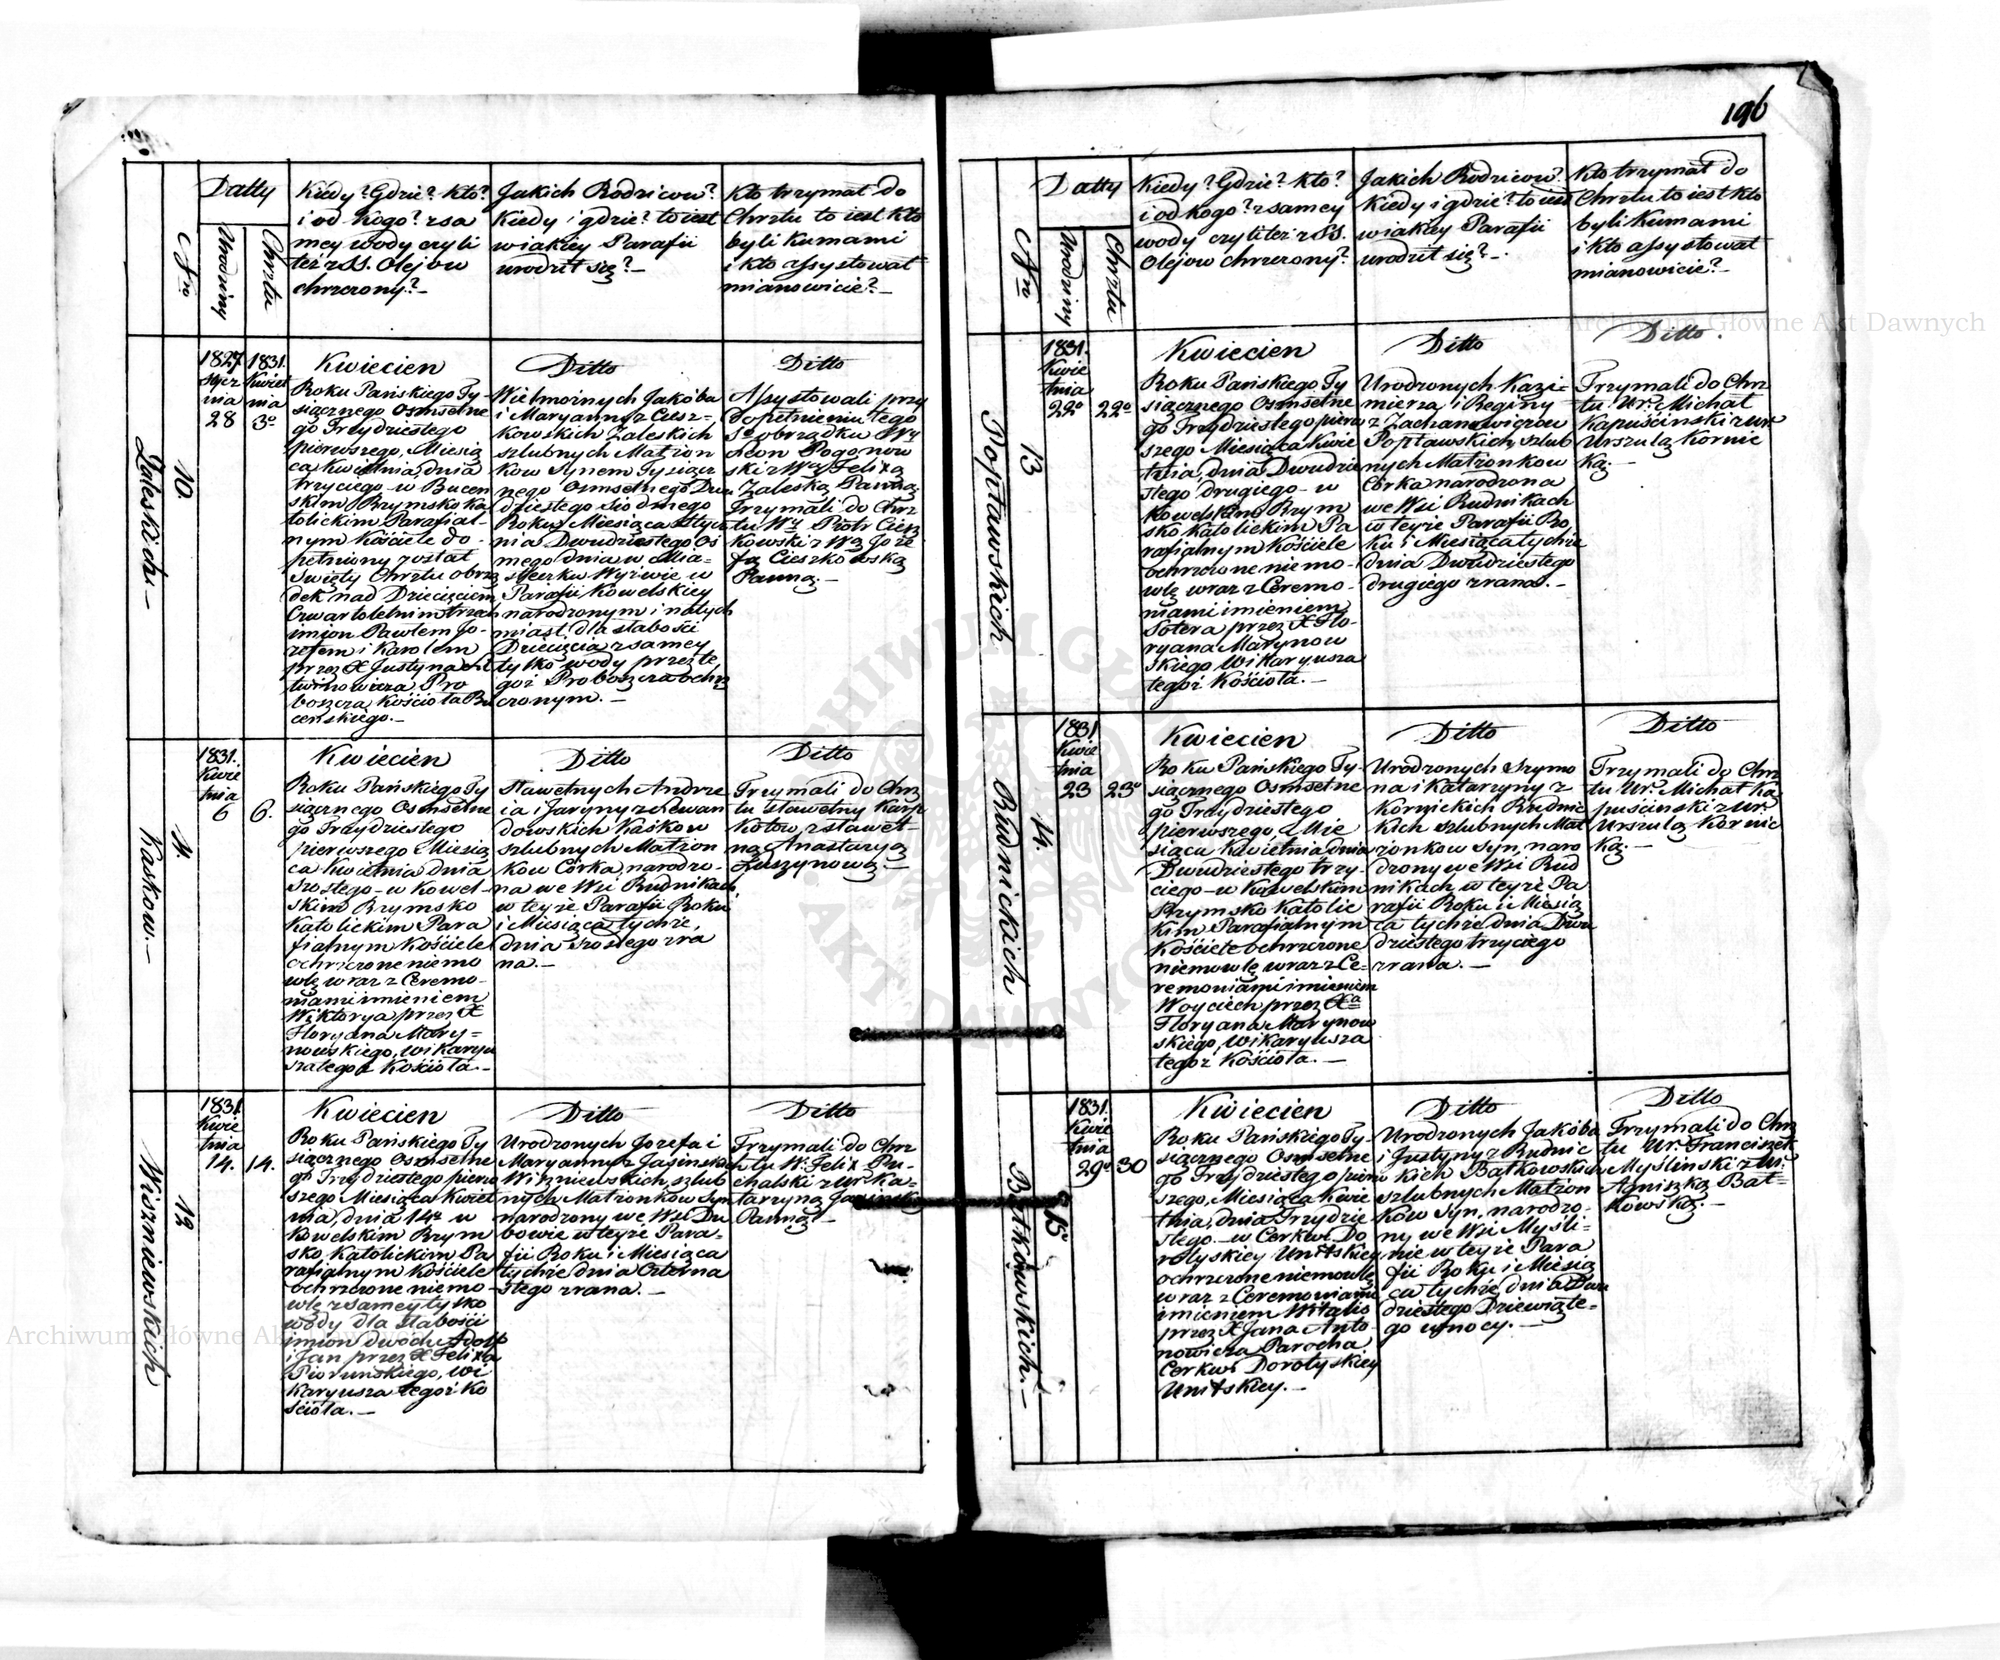 196
Datty
Urodziny
Chrztu
Nro
Kiedy? Gdzie? Kto?
i od Kogo? z sa
mey wody czyli
też z SS. Olejow
chrzczony?—
Jakich Rodzicow?
Kiedy i gdzie? to iest
w iakiey Parafii
urodził się?—
Kto trzymał do
Chrztu to iest kto
byli Kumami
i kto assystował
mianowicie?—
Zaleskich.—
10.
1827
stycz
nia
28
1831.
Kwiet
nia
3o
Kwiecien
Roku Pańskiego Ty
siącznego Osmsetne
go Trzydziestego
pierwszego, Miesią
ca Kwietnia, dnia
trzyciego w Bucen
skim Rzymsko Ka
tolickim Parafial-
nym Kościele do-
pełniony został
Swięty Chrztu obrzą
dek nad Dziecięciem
Czwartoletnim trzech
imion Pawłem Jo-
zefem i Karolem
przez X Justyna
Pro
boszcza Kościoła Bu
ceńskiego.—
Ditto
Wielmożnych Jakóba
i Maryanny z Ciesz-
kowskich Zaleskich
szlubnych Małżon
kow Synem Tysiącz
nego Osmsetnego Dwu
dziestego siodmego
Roku, Miesiąca Stycz
nia Dwudziestego Os
mego dnia w Mia-
steczku Wyżwie w
Parafii Kowelskiey
narodzonym i natych
miast dla słabości
Dziecięcia z samey
tylko wody przez te
goż Proboszcza ochrz
czonym.—
Ditto
Assystowali przy
dopełnieniu tego
So obrządku Wy
Leon Pogonow
ski z Wą Felixą
Zaleską Panną
Trzymali do Chrz
tu Wy Piotr Ciesz
kowski z Wą Joze
fą Cieszkowską
Panną.—
Kaskow.—
11.
1831.
Kwie
tnia
6
6.
Kwiecien
Roku Pańskiego Ty
siącznego Osmsetne
go Trzydziestego
pierwszego Miesią
ca Kwietnia dnia
szostego w Kowel-
skim Rzymsko
Katolickim Para
fialnym Kościele
ochrzczone niemo
wlę wraz z Ceremo-
niami imieniem
Wiktorya przez X
Floryana Mary-
nowskiego, Wikaryu
sza tegoż Kościoła.—
Ditto
Sławetnych Andrze
ia i Jaryny z Lewan
dowskich Kaśkow
szlubnych Małżon
kow Córka, narodzo-
na we Wsi Rudnikach
w teyże Parafii Roku
i Miesiąca tychże,
dnia szostego zra
na.—
Ditto
Trzymali do Chrz
tu sławetny Karp
Kotow, z sławet-
ną Anastazyą
Łuszynową.—
Wiszniewskich
12
1831.
Kwie
tnia
14.
14.
Kwiecien
Roku Pańskiego Ty
siącznego Osmsetne
go Trzydziestego pierw
szego Miesiąca Kwiet
nia, dnia 14o w
Kowelskim Rzym
sko Katolickim Pa
rafialnym Kościele
ochrzczone niemo
wlę z samey tylko
wody dla słabości
imion dwoch Adolf
i Jan przez X Felixa
Piorunskiego, Wi
karyusza tegoż Ko
ścioła.—
Ditto
Urodzonych Jozefa i
Maryanny z Jasinskich
Wiszniewskich, szlub
nych Małżonkow Syn
narodzony we Wsi Du
bowie w teyże Para-
fii Roku i Miesiąca
tychże dnia Czterna
stego zrana.—
Ditto
Trzymali do Chrz
tu W. Felix Pu-
chalski z Ur. Ka-
tarzyną Jasinską
Panną.—
Datty
Urodziny
Chrztu
Nro
Kiedy? Gdzie? Kto?
i od kogo? z samey
wody czyli też z SS.
Olejow chrzczony?
Jakich Rodzicow?
Kiedy i gdzie? to iest
w iakiey Parafii
urodził się?—
Kto trzymał do
Chrztu to iest kto
byli Kumami
i kto assystował
mianowicie?—
Popławskich
13
1831.
Kwie
tnia
22o
22o
Kwiecien
Roku Pańskiego Ty
siącznego Osmsetne
go Trzydziestego pierw
szego Miesiąca Kwie
tnia, dnia Dwudzie
stego drugiego w
Kowelskim Rzym
sko Katolickim Pa
rafialnym Kościele
ochrzczone niemo-
wlę wraz z Ceremo-
niami imieniem
Sotera przez X Flo-
ryana Marynow
skiego Wikaryusza
tegoż Kościoła.—
Ditto
Urodzonych Kazi-
mierza i Reginy
z Zachanowiczow
Popławskich, szlub
nych Małżonkow
Córka narodzona
we Wsi Rudnikach
w teyże Parafii Ro
ku i Miesiąca tychże
dnia Dwudziestego
drugiego zrana.—
Ditto.
Trzymali do Chrz
tu Ur. Michał
Kapuściński z Ur.
Urszulą Kornic
ką.—
Rudnickich
14.
1831
Kwie
tnia
23
23o
Kwiecien
Roku Pańskiego Ty-
siącznego Osmsetne
go Trzydziestego
pierwszego, Mie
siąca Kwietnia dnia
Dwudziestego trzy-
ciego w Kowelskim
Rzymsko Katolic
kim Parafialnym
Kościele ochrzczone
niemowlę wraz z Ce-
remoniami imieniem
Woyciech przez Xa
Floryana Marynow
skiego, Wikaryusza
tegoż Kościoła.—
Ditto
Urodzonych Szymo
na i Katarzyny z
Kornickich Rudnic
kich szlubnych Mał
żonkow Syn, naro
dzony we Wsi Rud
nikach w teyże Pa
rafii Roku i Miesią
ca tychże dnia Dwu
dziestego trzyciego
zrana.—
Ditto
Trzymali do Chrz
tu Ur. Michał Ka
puściński z Ur.
Urszulą Kornic
ką.—
Batkowskich.—
15
1831.
Kwie
tnia
29o
30
Kwiecien
Roku Pańskiego Ty-
siącznego Osmsetne
go Trzydziestego pierw
szego, Miesiąca Kwie
tnia, dnia Trzydzie
stego w Cerkwi Do
rotyskiey Unitskiey
ochrzczone niemowlę
wraz z Ceremoniami
imieniem Witalis
przez X Jana Anto-
nowicza Parocha
Cerkwi Dorotyskiey
Unitskiey.—
Ditto
Urodzonych Jakóba
i Justyny z Rudnic
kich Batkowskich
szlubnych Małżon
ków Syn, narodzo-
ny we Wsi Myśli-
nie w teyże Para
fii Roku i Miesią
ca tychże, dnia Dwu
dziestego Dziewiąte-
go w nocy.—
Ditto
Trzymali do Chrz
tu Ur. Franciszek
Myśliński z Ur.
Agniszką Bat-
kowską.—
Archiwum Główne Akt Dawnych
Archiwum Główne Akt Dawnych
ARCHIWUM GŁÓWNE
AKT DAWNYCH